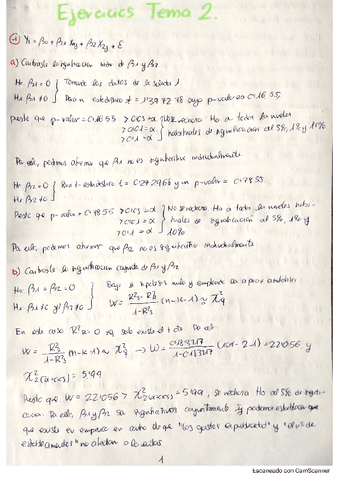 Ejercicios Tema 2.
① Yi = β0 + β1 X1j + β2 X2j + ε
a) Contraste la significación indiv. de β1 y β2
H0: β1 = 0 } Tomando los datos de la salida 1.
H1: β1 ≠ 0 } Para un estadístico t = 1'397278 cuyo p-valor = 0'1655
puesto que p-valor = 0'1655 > 0'05 = α } No se rechaza H0 a todos los niveles
> 0'01 = α } habituales de significación al 5%, 1% y 10%
> 0'1 = α
Por ello, podemos afirmar que β1 no es significativo individualmente.
H0: β2 = 0 } Para t-estadístico t = 0'272966 y un p-valor = 0'7855
H1: β2 ≠ 0
Puesto que p-valor = 0'7855 > 0'05 = α } No se rechaza H0 a todos los niveles habi-
> 0'01 = α } tuales de significación al 5%, 1% y
> 0'1 = α } 10%
Por ello, podemos afirmar que β2 no es significativo individualmente.
b) Contraste la significación conjunta de β1 y β2
H0: β1 = β2 = 0 } Bajo la hipótesis nula y
H1: β1 ≠ 0 y/o β2 ≠ 0 } W = (n-k-1) ≈ χ²q
En este caso R²R = 0 ya que solo existe el t. cte. Por ello
W = R² / 1-R² (n-k-1) ≈ χ²q → W = (101-2-1) = 22'1056 y
χ²2 (α=0'05) = 5'99
Puesto que W = 22'1056 > χ²2 (α=0'05) = 5'99, se rechaza H0 al 5% de signifi-
cación. Por ello, β1 y β2 son significativos conjuntamente y podemos establecer que
que existe en contra de que "los gastos en publicidad" y "el nº de
establecimientos" no afectan a las ventas.
1
Escaneado con CamScanner